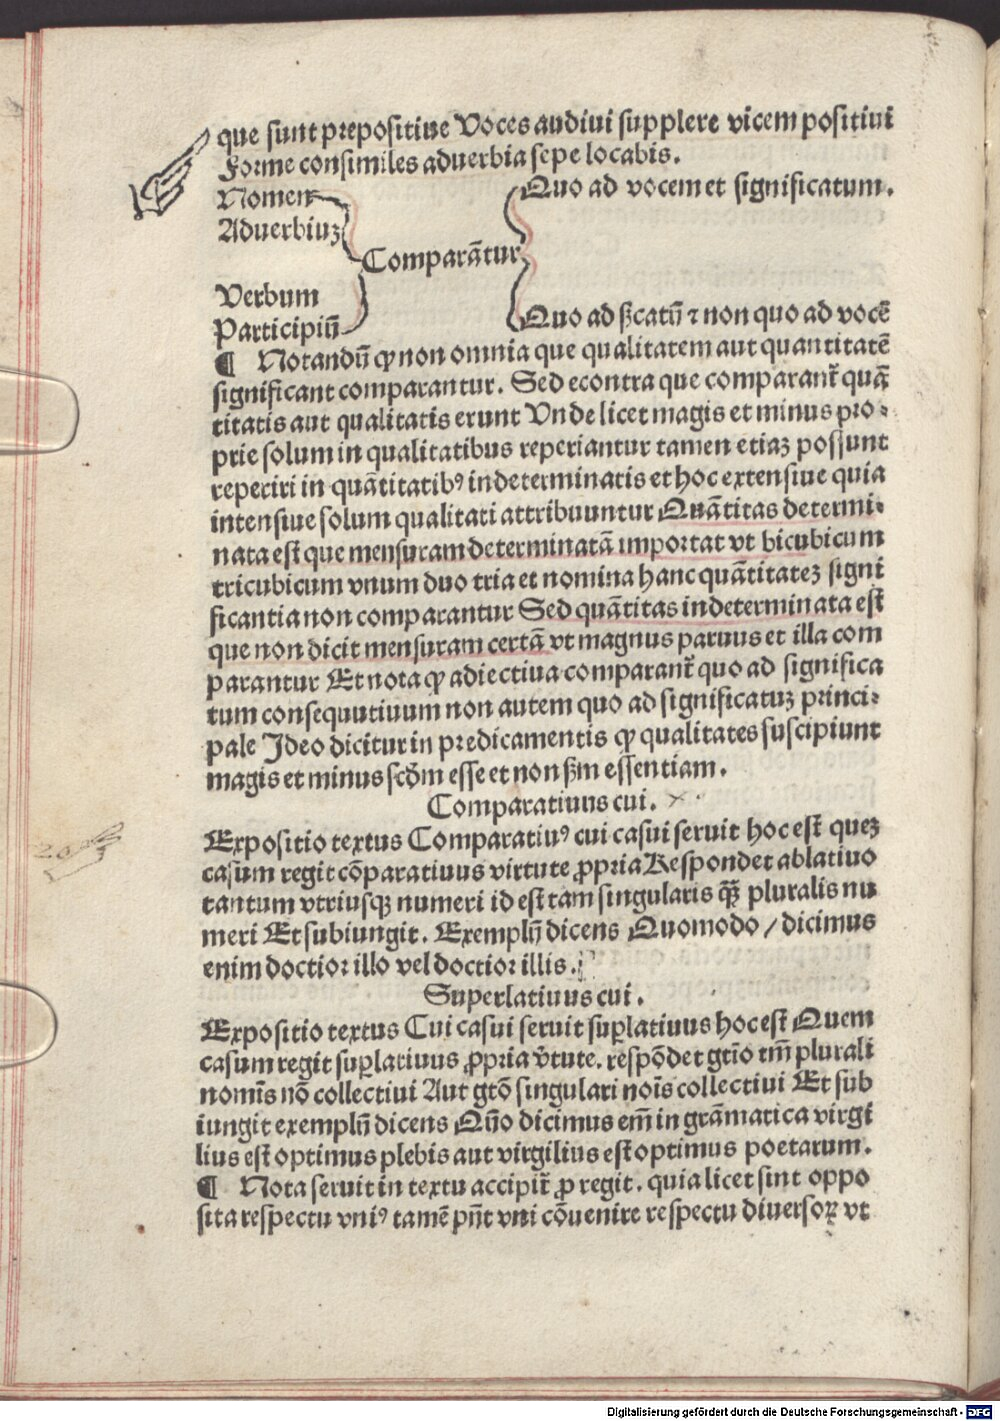 que sunt prepositiue Voces audiui supplere vicem positiui
Forme consimiles aduerbia sepe locabis.
Nomen
Aduerbiuʒ
Quo ad vocem et significatum.
Comparãtur
Verbum
Participiũ
Quo ad ßcatũ ⁊ non quo ad vocẽ
¶ Notandũ ꝙ non omnia que qualitatem aut quantitatẽ
significant comparantur. Sed econtra que comparant̃ quã
titatis aut qualitatis erunt Vnde licet magis et minus pro⸗
prie solum in qualitatibus reperiantur tamen etiaʒ possunt
reperiri in quãtitatibꝰ indeterminatis et hoc extensiue quia
intensiue solum qualitati attribuuntur Quãtitas determi⸗
nata est que mensuram determinatã importat vt bicubicum
tricubicum vnum duo tria et nomina hanc quãtitateʒ signi
ficantia non comparantur Sed quãtitas indeterminata est
que non dicit mensuram certã vt magnus paruus et illa com
parantur Et nota ꝙ adiectiua comparant̃ quo ad significa
tum consequutiuum non autem quo ad significatuʒ princi⸗
pale Ideo dicitur in predicamentis ꝙ qualitates suscipiunt
magis et minus scðm esse et non ßm essentiam.
Comparatiuus cui.
Expositio textus Comparatiuꝰ cui casui seruit hoc est queʒ
casum regit cõparatiuus virtute ꝓpria Respondet ablatiuo
tantum vtriusqʒ numeri id est tam singularis qʒ̃ pluralis nu
meri Et subiungit. Exemplũ dicens Quomodo / dicimus
enim doctior illo vel doctior illis.
Superlatiuus cui.
Expositio textus Cui casui seruit suꝑlatiuus hoc est Quem
casum regit suꝑlatiuus ꝓpria v̾tute. respõdet gtĩo tm̃ plurali
nomĩs nõ collectiui Aut gtõ singulari noĩs collectiui Et sub
iungit exemplũ dicens Qũo dicimus em̃ in grãmatica virgi
lius est optimus plebis aut virgilius est optimus poetarum.
¶ Nota seruit in textu accipit̃ ꝓ regit. quia licet sint oppo
sita respectu vniꝰ tamẽ pñt vni cõuenire respectu diuersoꝝ vt
Digitalisierung gefördert durch die Deutsche Forschungsgemeinschaft - DFG